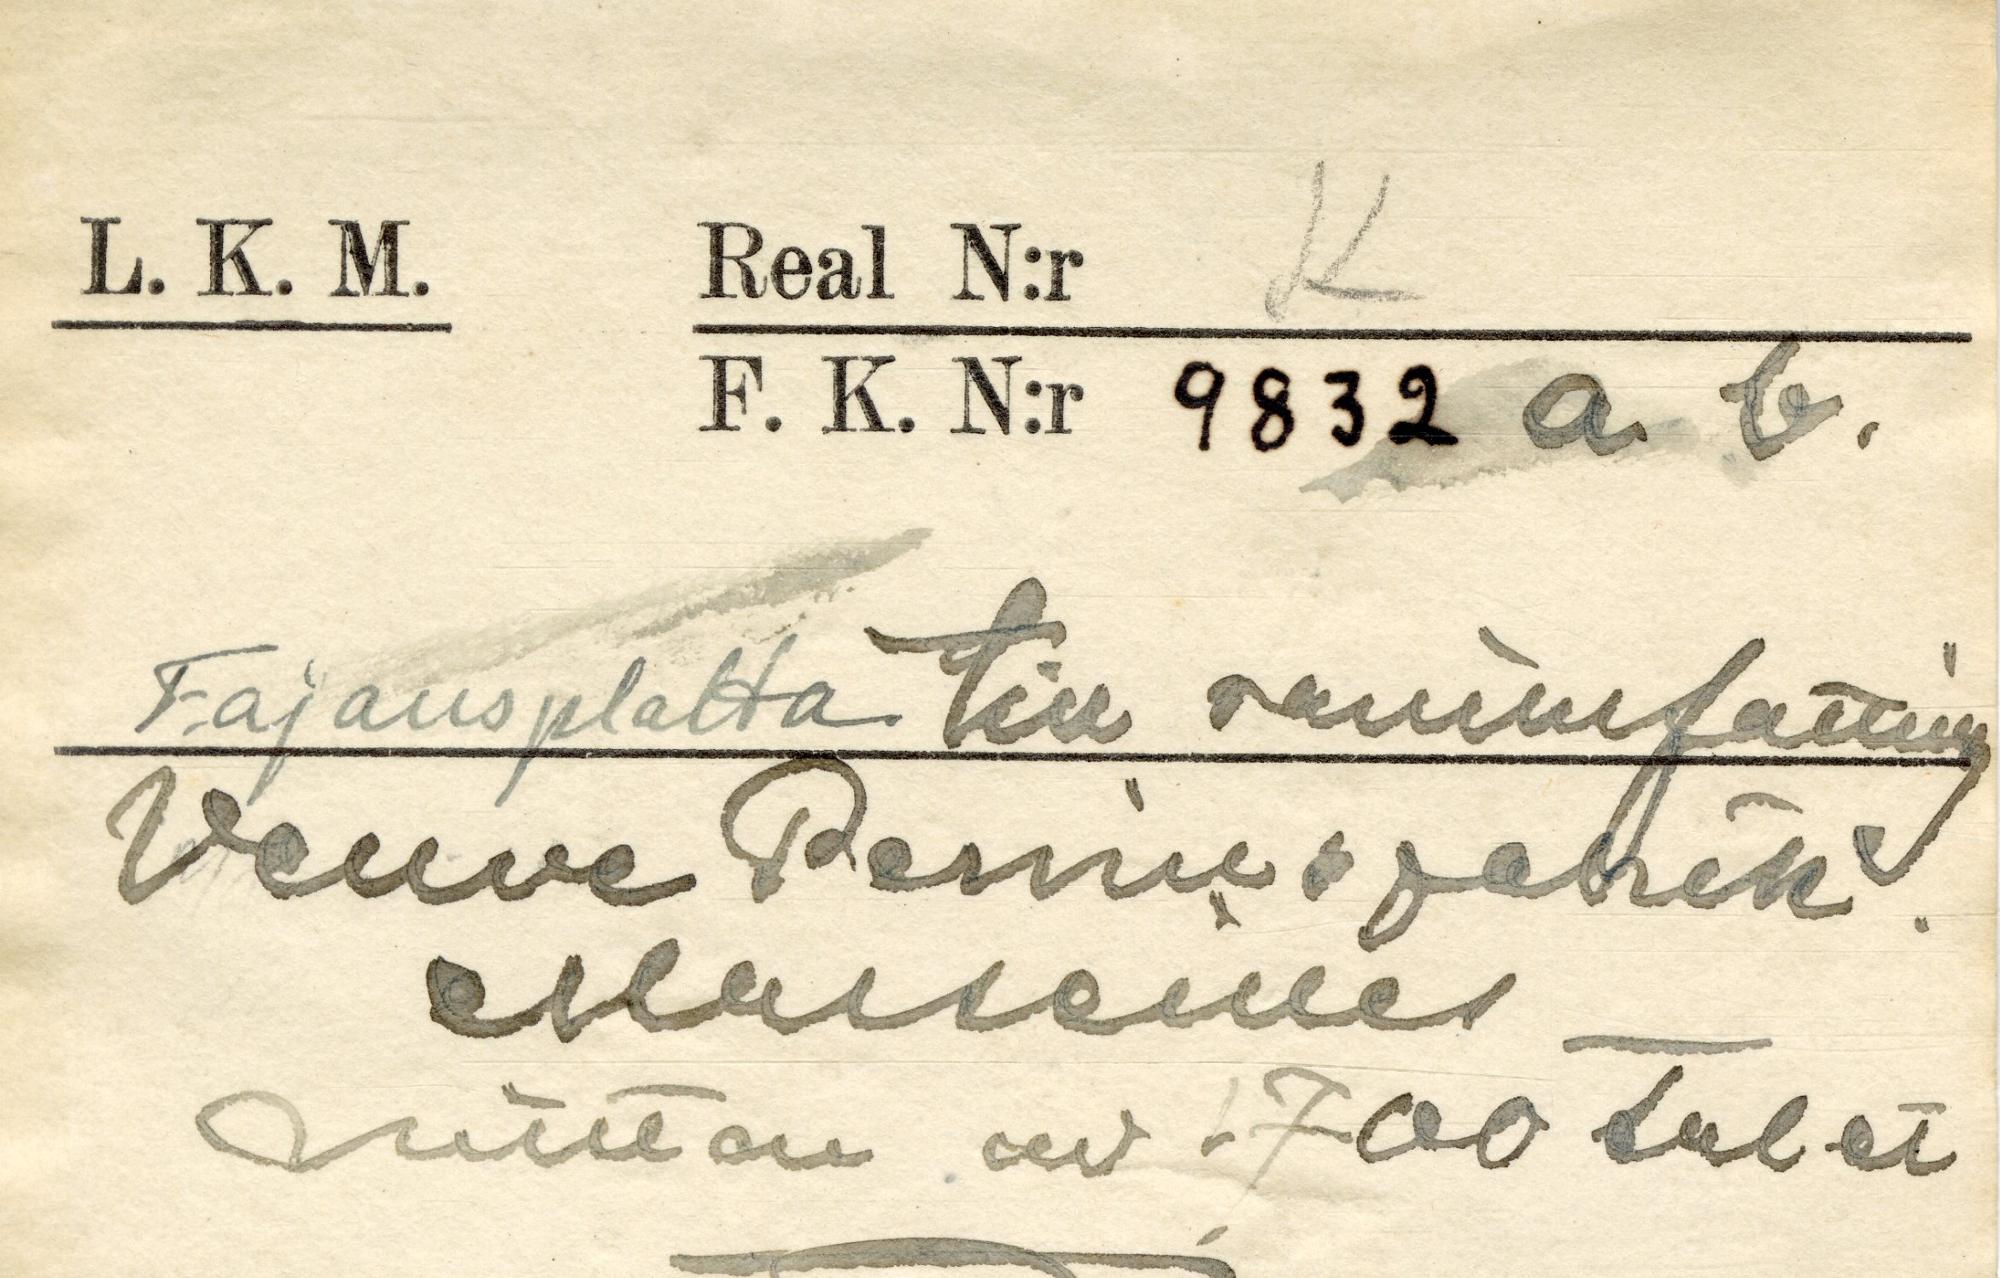 L. K. M. Real N:r K
F. K. N:r 9832 a b.
Fajansplatta till raminfattning
Veuve Perrins fabrik.
Marseilles
Mitten av 1700 talet